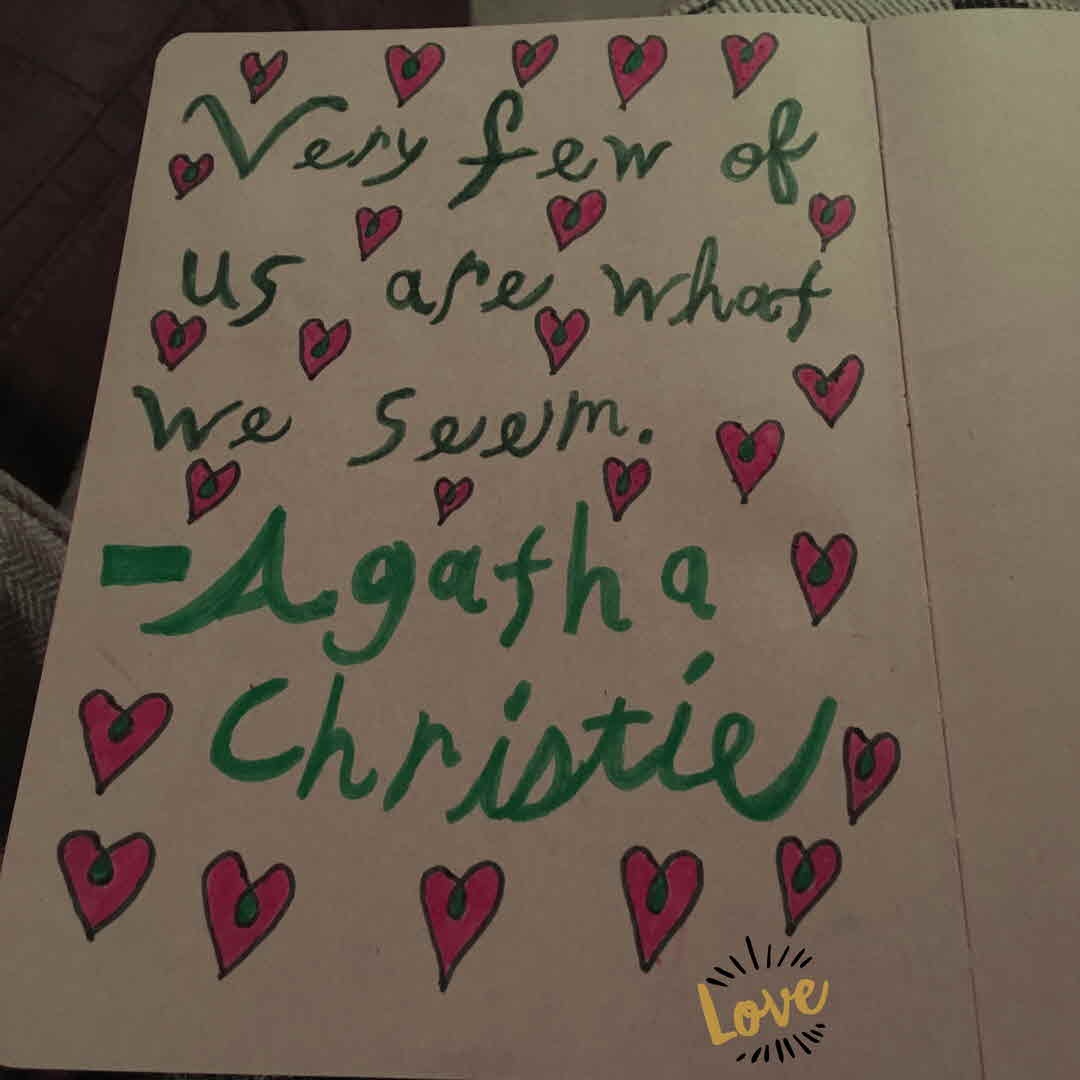 Very few of
us are what
we seem.
-Agatha
Christie
Love